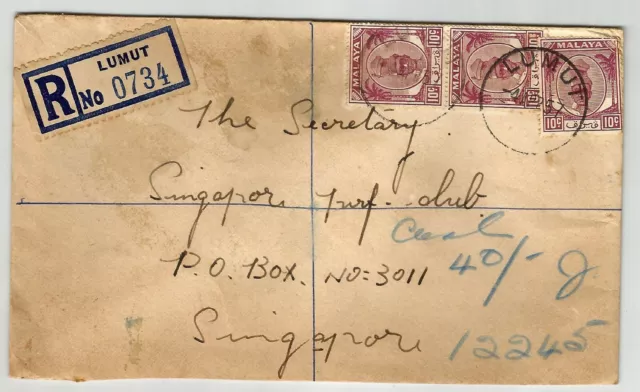 LUMUT
R No 0734
MALAYA
10C
MALAYA
10C
MALAYA
10C 10C
LUMUT
The Secretary
Singapore Turf-club
P.O. Box. No=3011
Singapore
40/-
12245